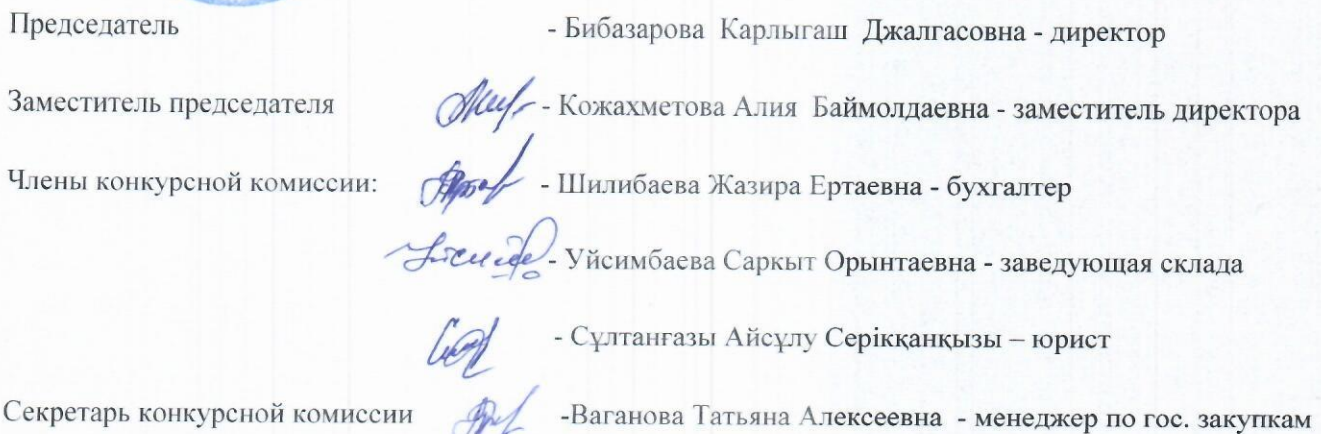 Председатель - Бибазарова Карлыгаш Джалгасовна - директор
Заместитель председателя - Кожахметова Алия Баймолдаевна - заместитель директора
Члены конкурсной комиссии: - Шилибаева Жазира Ертаевна - бухгалтер
- Уйсимбаева Саркыт Орынтаевна - заведующая склада
- Сұлтанғазы Айсұлу Серікқанқызы – юрист
Секретарь конкурсной комиссии -Ваганова Татьяна Алексеевна - менеджер по гос. закупкам